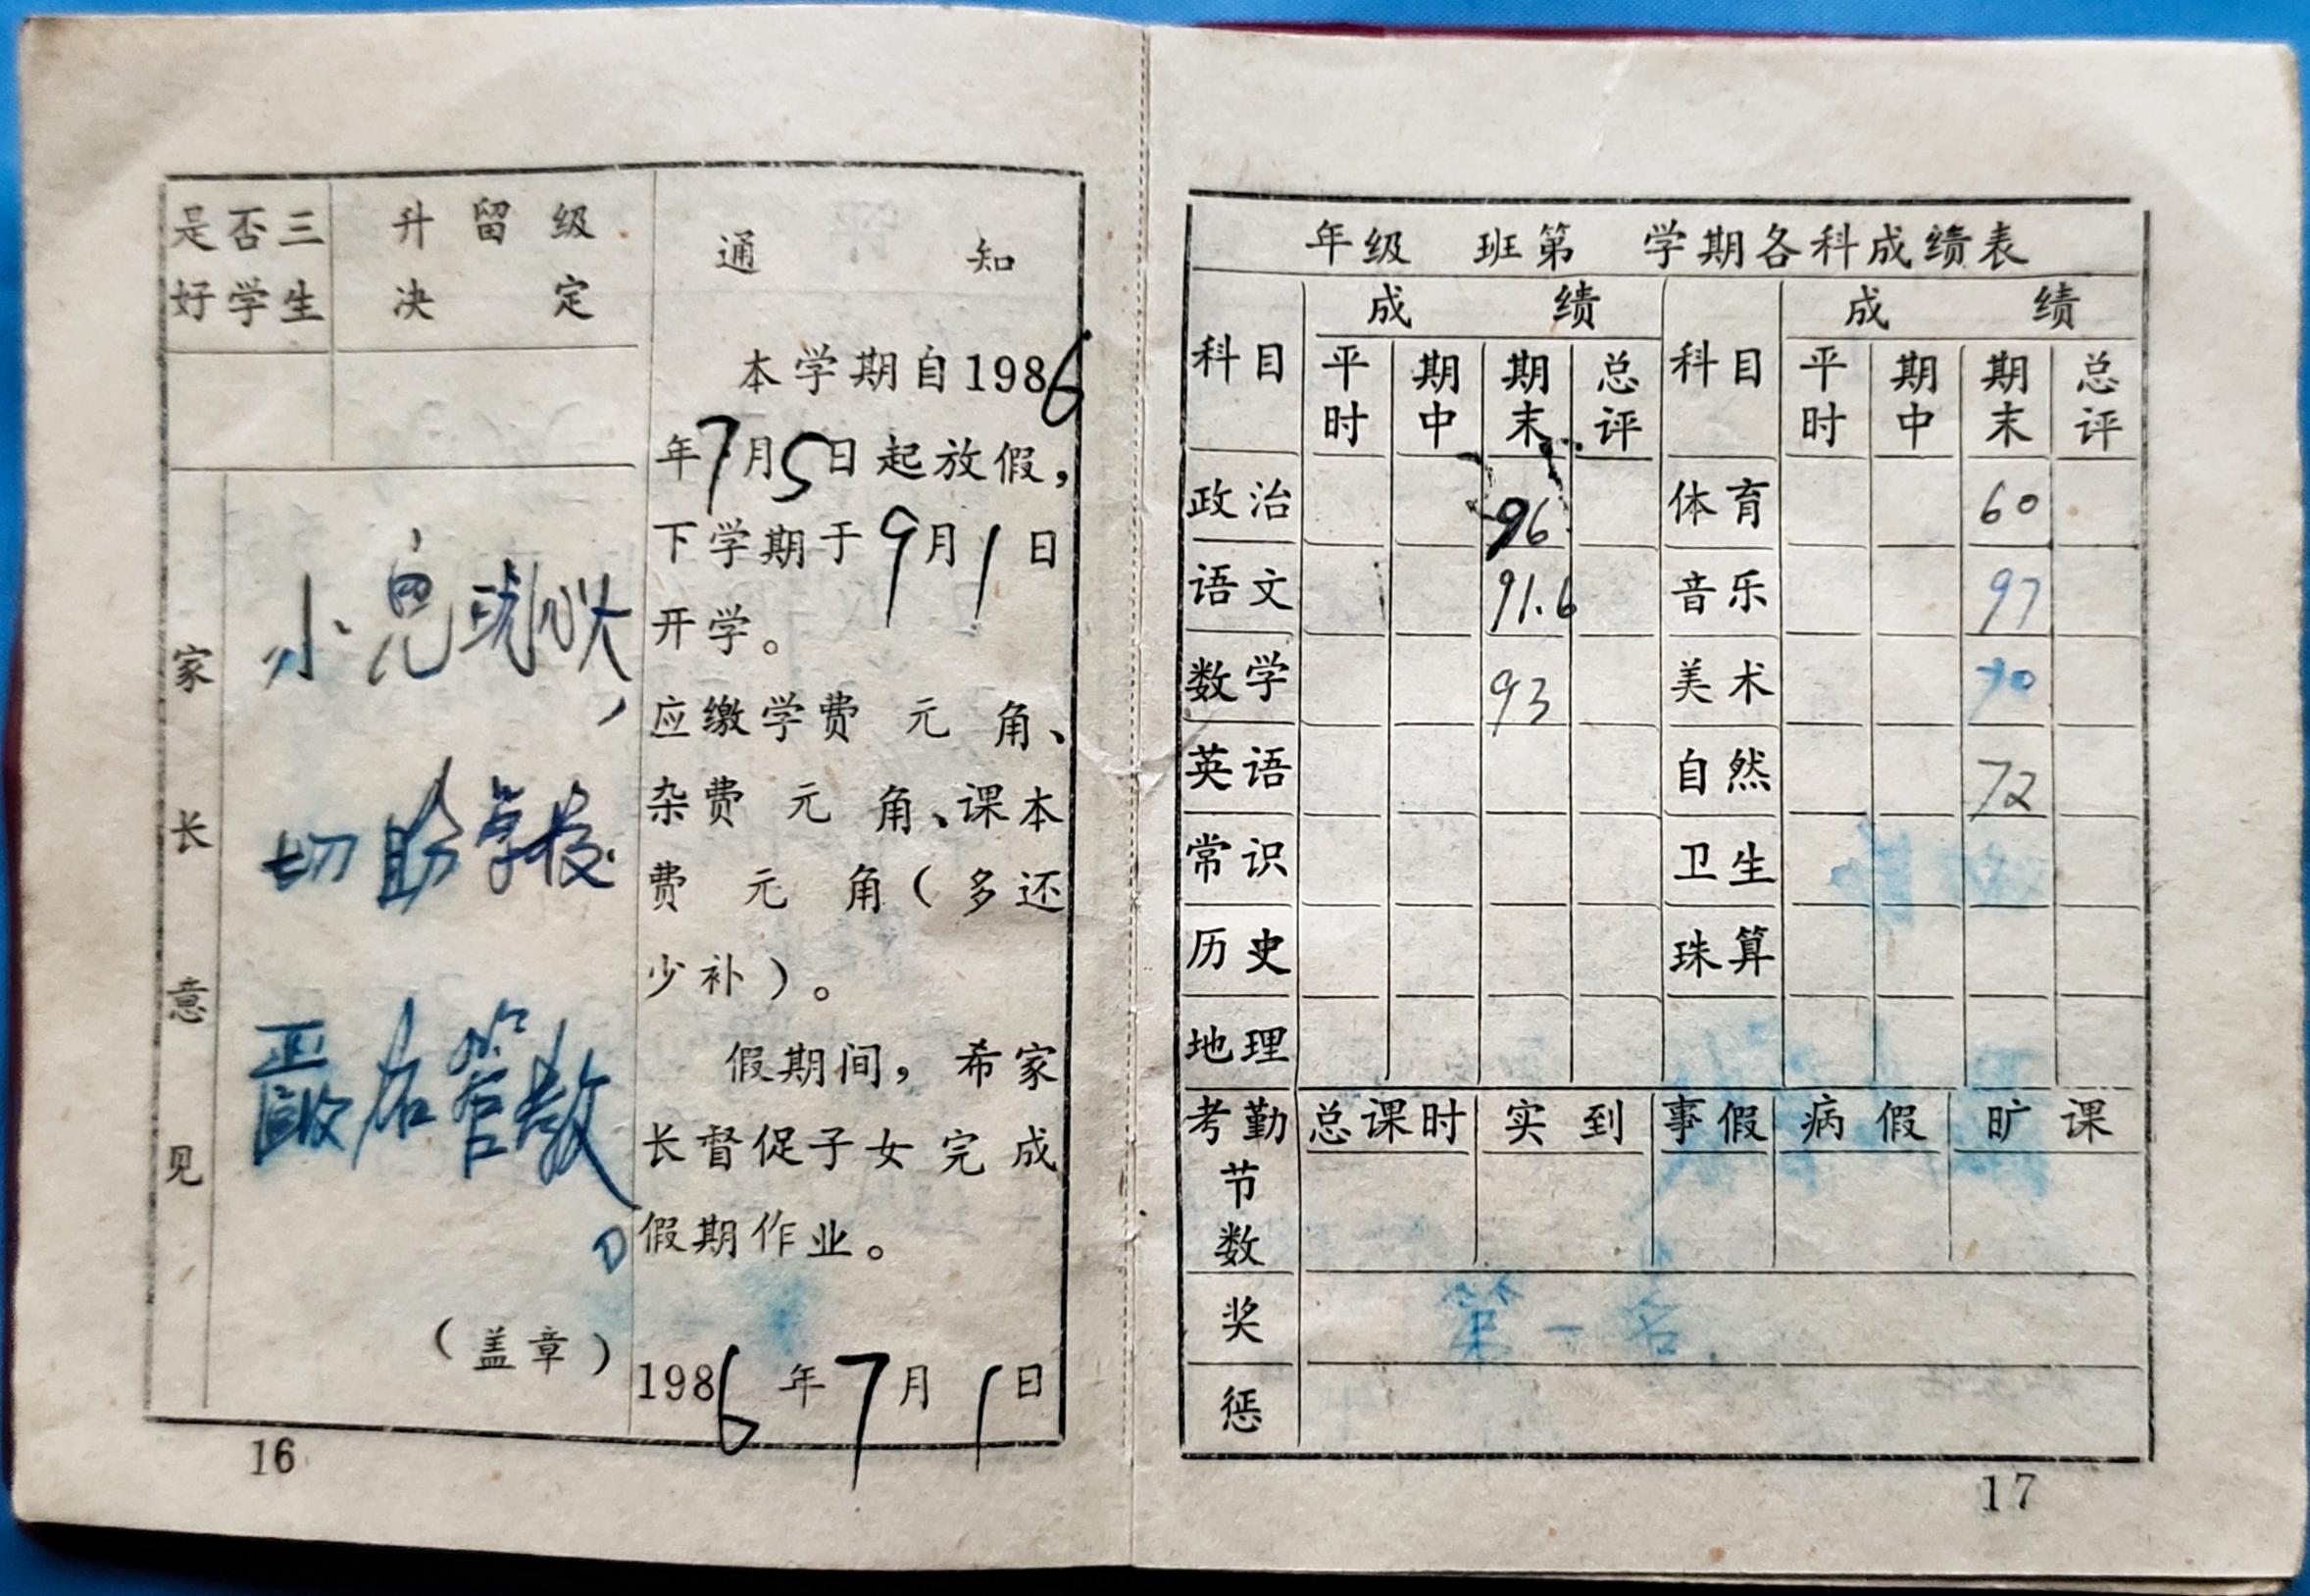 是否三
好学生
升留级
决定
通知
本学期自1986
年7月5日起放假，
下学期于9月1日
开学。
应缴学费 元 角、
杂费 元 角、课本
费 元 角（多还
少补）。
假期间，希家
长督促子女完成
假期作业。
1986年7月1日
家长意见
小儿
切盼学校
严厉管教。
（盖章）
16
年级 班第 学期各科成绩表
科目 成绩 科目 成绩
平时 期中 期末 总评 平时 期中 期末 总评
政治 96 体育 60
语文 91.6 音乐 97
数学 93 美术 90
英语 自然 72
常识 卫生
历史 珠算
地理
考勤节数 总课时 实到 事假 病假 旷课
奖 第一名.
惩
17